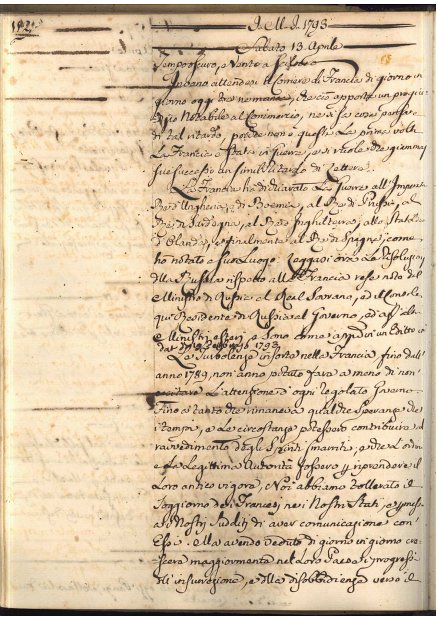 A. M. D. 1793
Sabato 13. Aprile
Tempo oscuro, e Vento a Scilocco
In vano attendesi il Corriere di Francia di giorno in
giorno oggi tre semane, che ciò apporta un pregiu=
dizio Notabile al Commercio, ne si sa cosa pensare
di tal ritardo, poiche non è questa La prima volta
La Francia è stata in Guerra, e si vuole che giammai
sue successo un simil Ritardo di Lettere.
La Francia ha dichiarato La Guerra all'
Rè d'Ungheria, di Boemia, al Rè di Prussia, al
Rè di Sardegna, al Rè d'Inghilterra, allo
d'Olanda, e finalmente al Rè di Spagna, come
ho notato a suo Luogo. Leggasi ora La Risoluzione
della Russia rispetto alla Francia resa nota dal
Ministro di Russia al Real Sovrano, ed il
qui Residente di Russia al Governo, ed
Ministri esteri, e sono come appresso un Editto in
data 1793
La Turbolenza insorta nella Francia, fino dall'
anno 1789, non anno potuto fare a meno di non
eccitare L'attenzione d'ogni regolato Governo.
Fino a tanto che rimaneva qualche Speranza che
i tempi, e Le circostanze potessero contribuire al
ravvedimento degli Spiriti smarriti, e che L'ordine
e La Legittima Autorità fossero riprendere il
Loro antico vigore, Noi abbiamo tollerato il
soggiorno dei Francesi nei Nostri Stati, e
ai Nostri Sudditi di aver comunicazione con
Essi. Ma avendo veduto di giorno in giorno cre=
scere maggiormente nel Loro Paese i progressi
di insurrezione, e della disobbidienza verso il